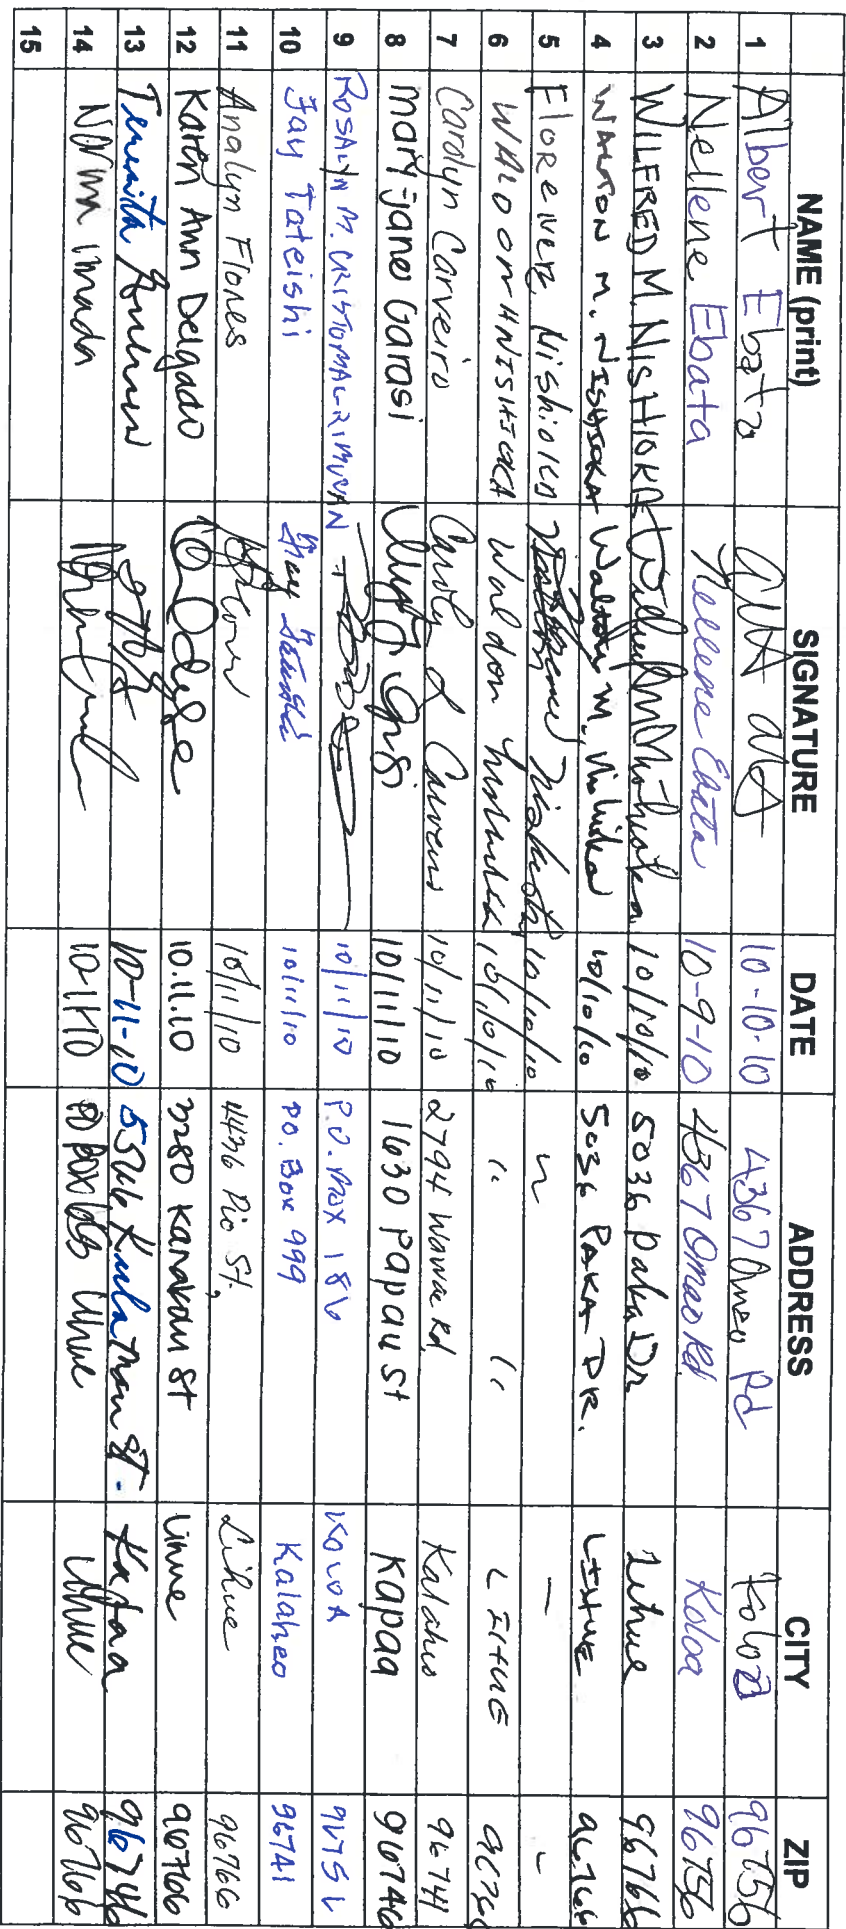 NAME (print) SIGNATURE DATE ADDRESS CITY ZIP
1 Albert Ebata 10-10-10 4367 Omao Rd Koloa 96756
2 Nellene Ebata Nellene Ebata 10-9-10 4367 Omao Rd Koloa 96756
3 WILFRED M. NISHIOKA 10/10/10 5036 Paka Dr Lihue 96766
4 WALTON M. NISHIOKA Walton M. Nishioka 10/10/10 5036 PAKA DR. LIHUE 96766
5 Nishioka 10/10/10 " - -
6 WALDON H NISHIOKA Waldon 10/10/10 " " LIHUE 96766
7 Carolyn Carveiro Carolyn L Carveiro 10/11/10 2794 Wawae Rd Kalaheo 96741
8 Mary-jane Garasi 10/11/10 1630 Papau St Kapaa 96746
9 ROSALYN M. 10/11/10 P.O. BOX 186 KOLOA 96756
10 Fay Tateishi Fay Tateishi 10/11/10 PO. Box 999 Kalaheo 96741
11 Analyn Flores 10/11/10 4436 Pio St. Lihue 96766
12 Karen Ann Delgado 10.11.10 3280 Kanakau St Lihue 96766
13 10-11-10 St. Kapaa 96746
14 Norma Imada 10-11-10 PO Box Lihue Lihue 96766
15